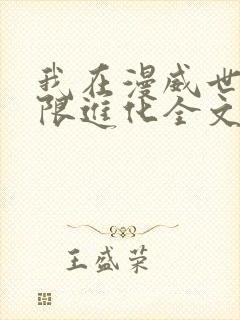 我在漫威世
限进化全文
王盛荣